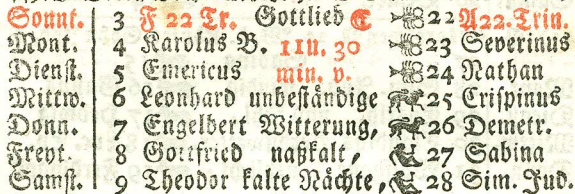 Sonnt. 3 F 22 Tr. Gottlieb 22 A 22. Trin.
Mont. 4 Karolus B. 11 U. 30 23 Severinus
Dienst. 5 Emericus min. v. 24 Nathan
Mittw. 6 Leonhard unbeständige 25 Crispinus
Donn. 7 Engelbert Witterung, 26 Demetr.
Freyt. 8 Gottfried naßkalt, 27 Sabina
Samst. 9 Theodor kalte Nächte, 28 Sim. Jud.